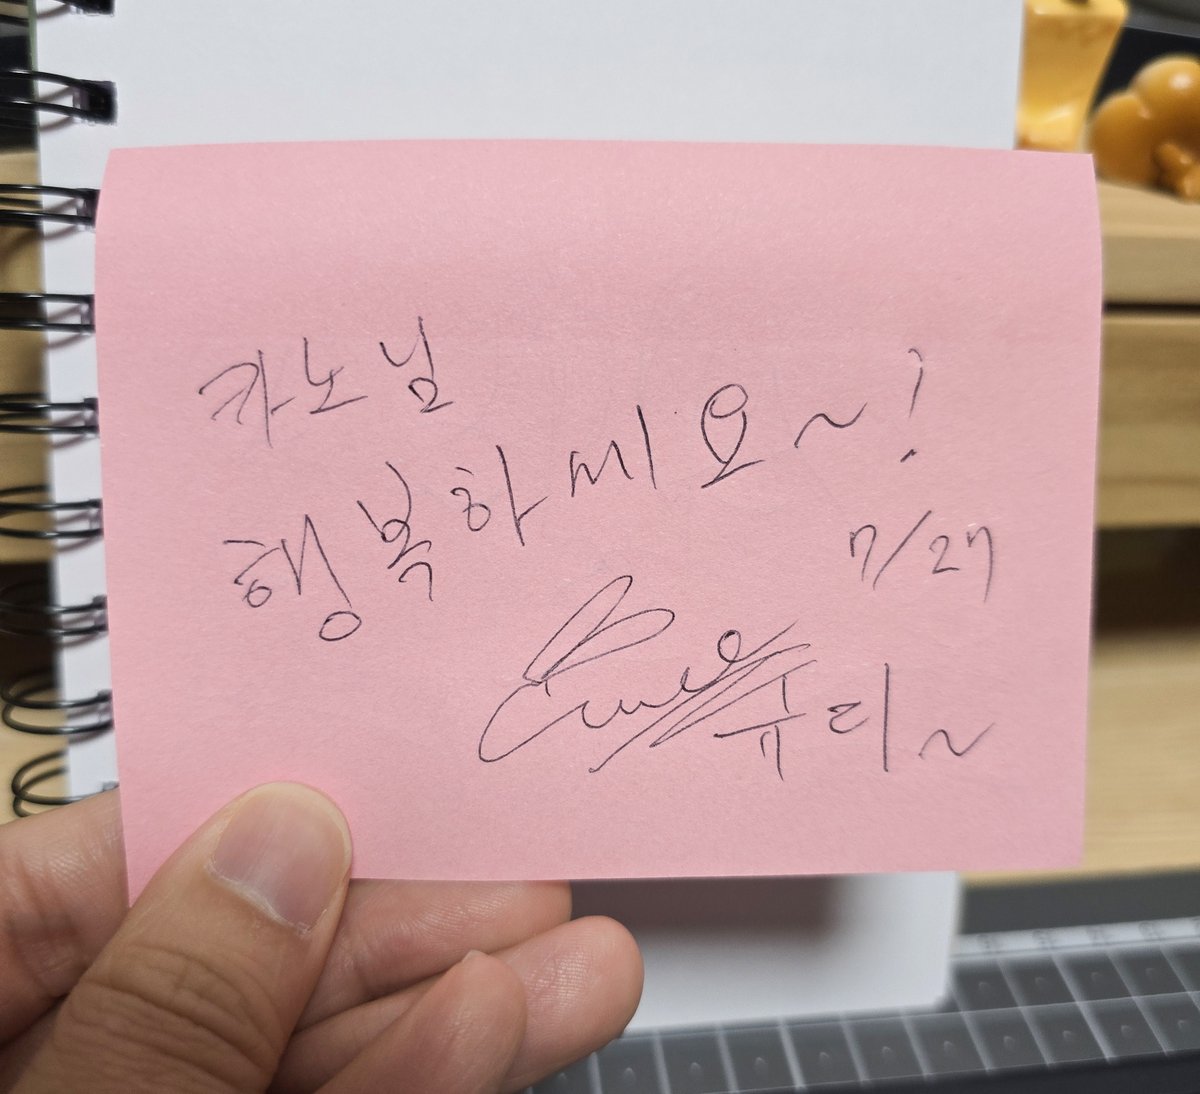 카노님
행복하세요~!
7/27
슈리~